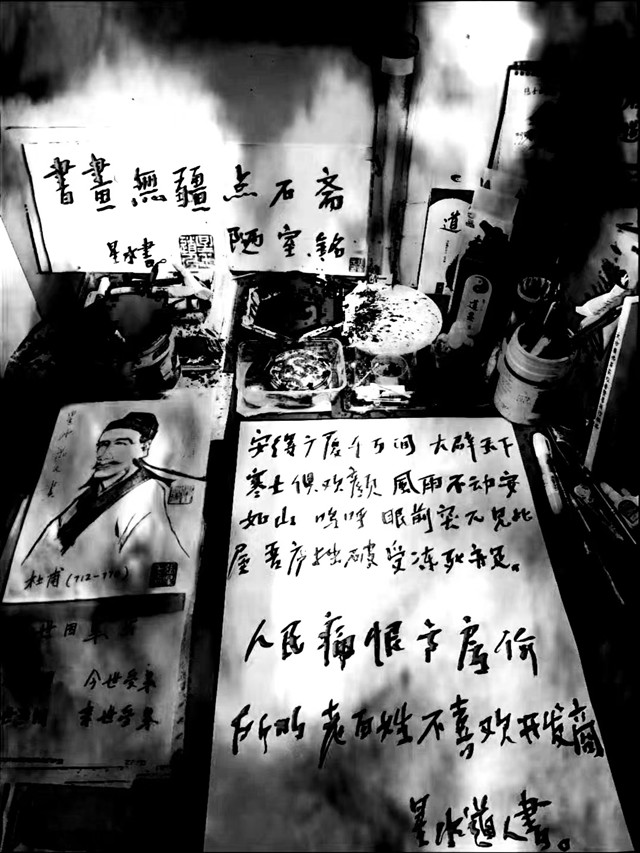 書畫無疆点石斋
陋室銘
星水書。
道
道
杜甫(712-770)
安得广厦千万间 大辟天下
寒士俱欢颜 風雨不动安
如山 呜呼 眼前突兀見此
屋 吾庐独破受冻死亦足。
人民痛恨高房价
老百姓不喜欢开发商
星水道人書。
世因
今世受
来世受